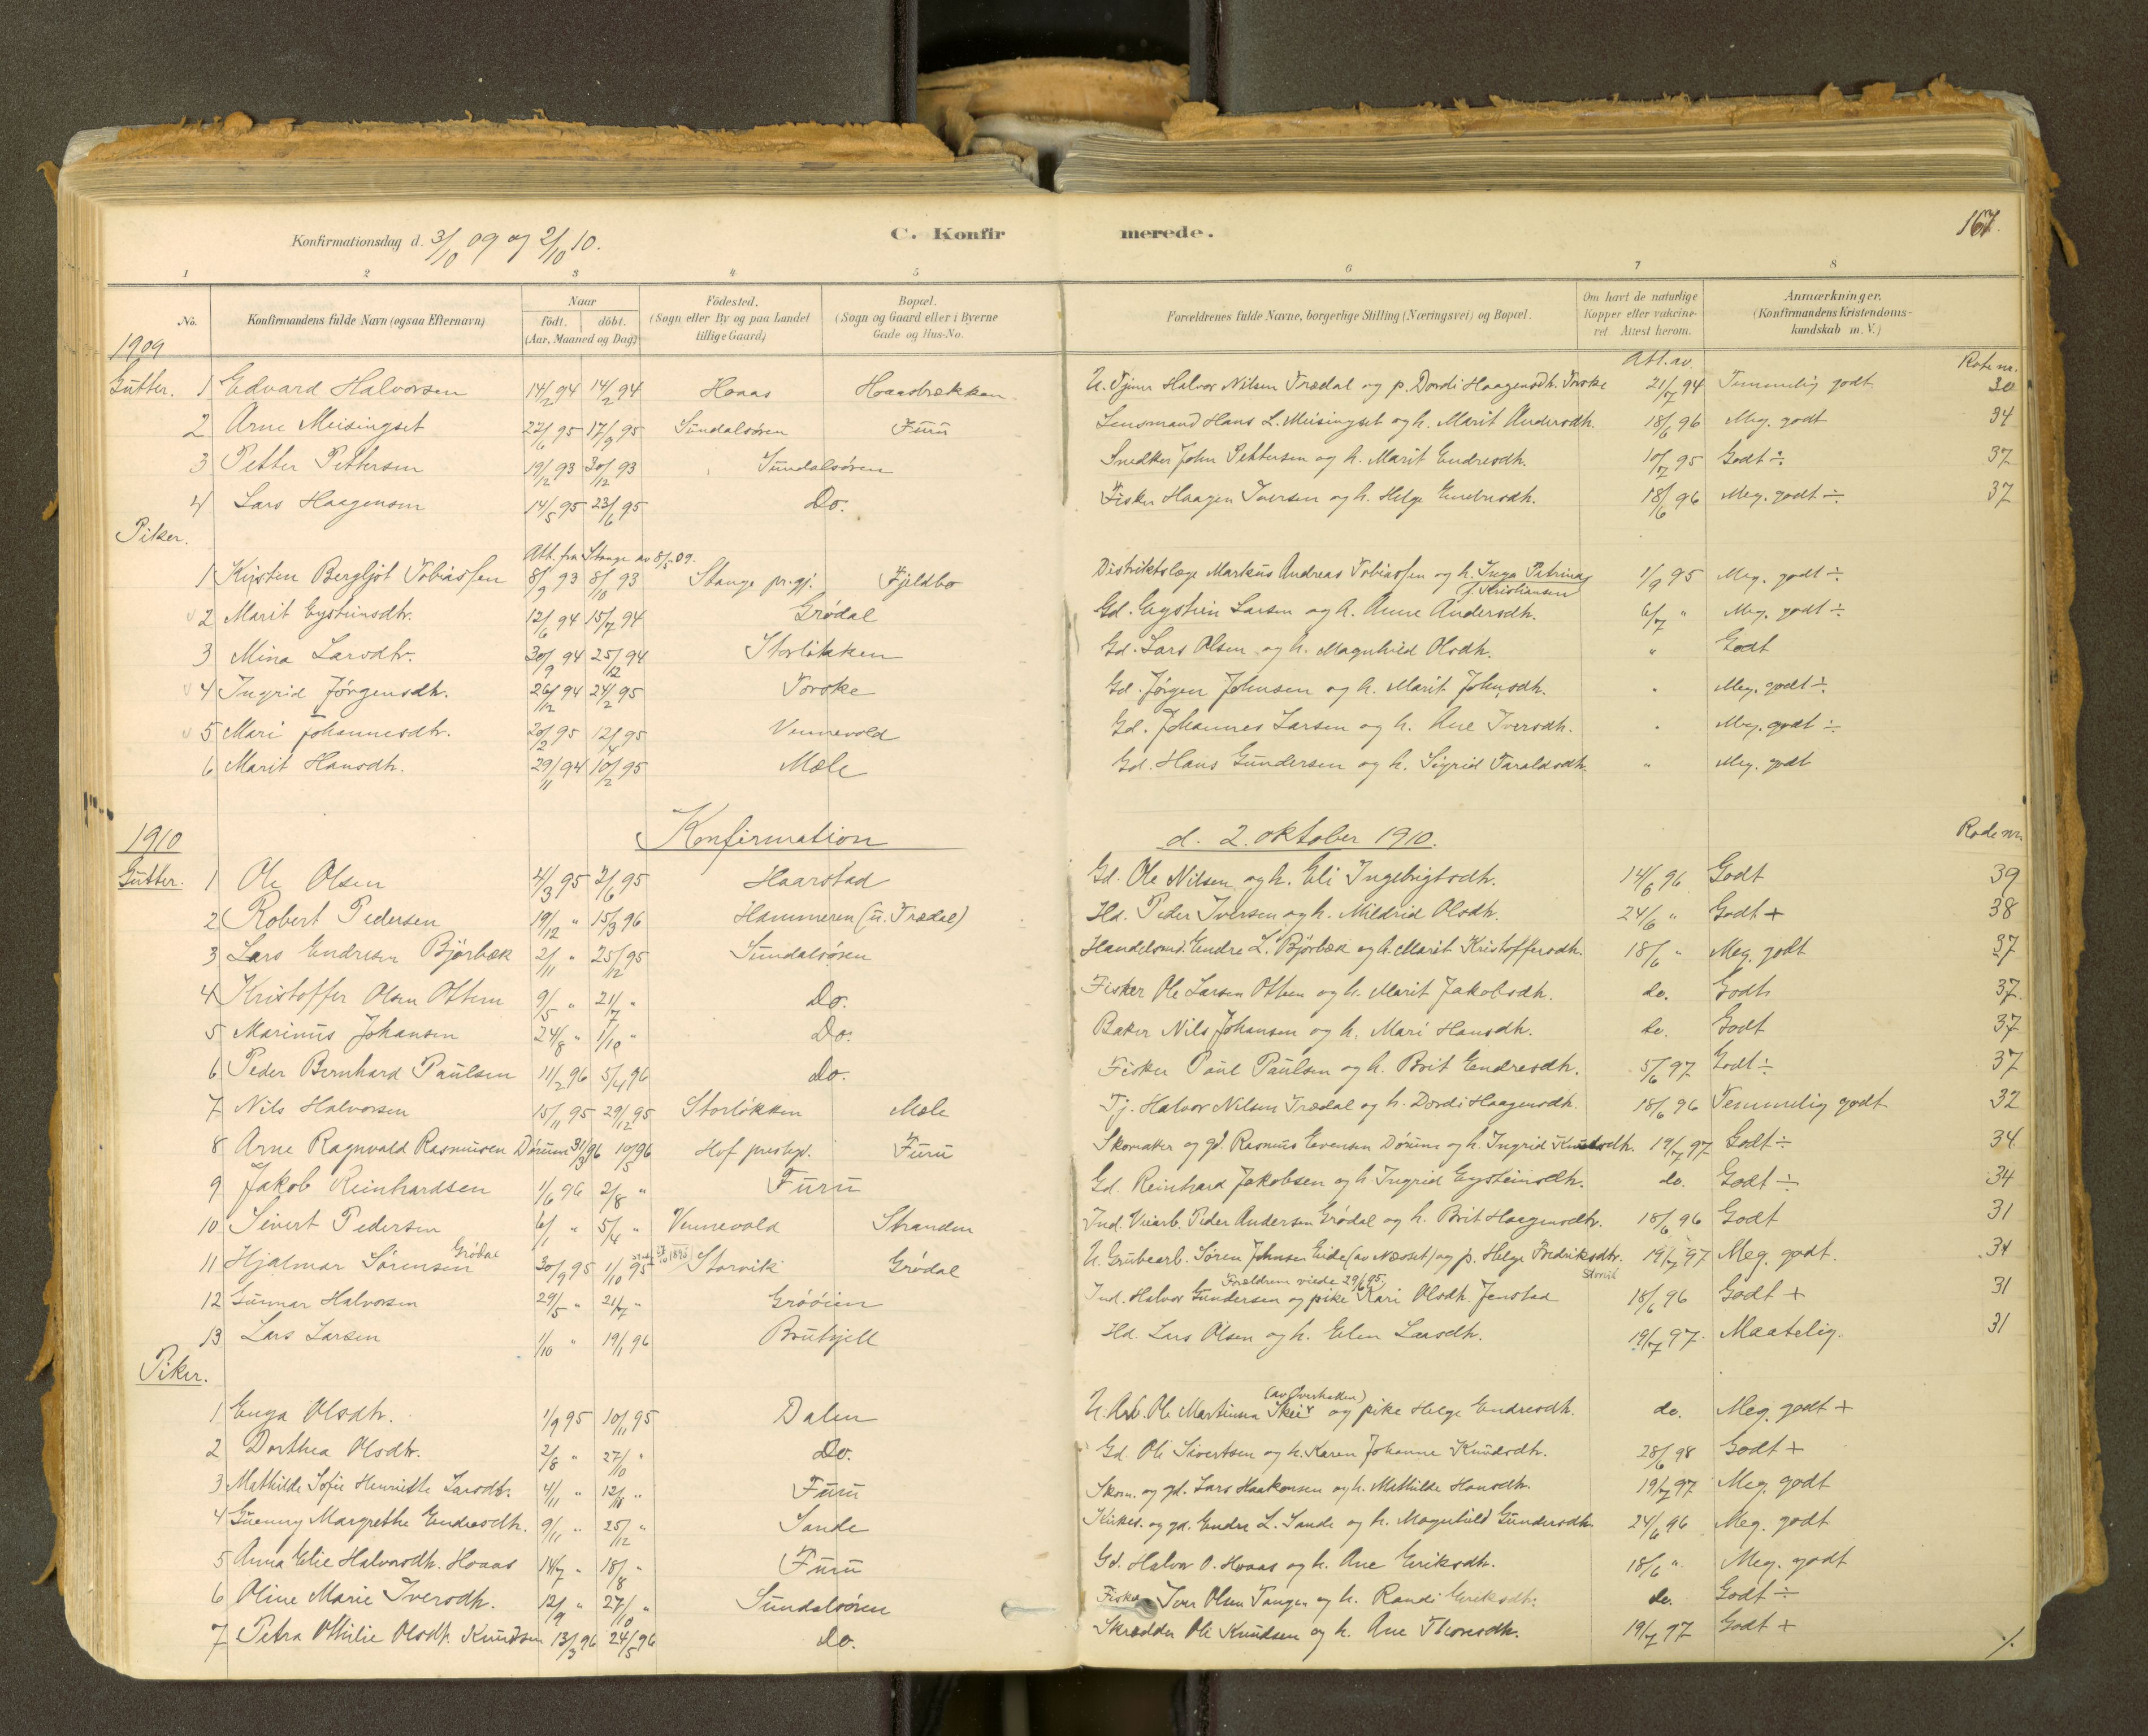 Konfirmationsdag d. 3/10 09 og 2/10 10. C. Konfirmerede. 167.
1 2 3 4 5 6 7 8
No. Konfirmandens fulde Navn (ogsaa Efternavn) Naar födt. döbt. (Aar, Maaned og Dag) Födested. (Sogn eller By og paa Landet tillige Gaard) Bopæl. (Sogn og Gaard eller i Byerne Gade og Hus-No. Forældrenes fulde Navne, borgerlige Stilling (Næringsvei) og Bopæl. Om havt de naturlige Kopper eller vakcineret Attest herom. Anmærkninger. (Konfirmandens Kristendomskundskab m. V.)
1909 Att. av Rode nr.
Gutter. 1 Edvard Halvorsen 14/2 94 14/2 94 Hoaas Hoaasbrækken U. Tjener Halvor Nilsen Trædal og p. Dordi Haagensdtr. Torske 21/7 94 Temmelig godt 30
2 Arne Meisingset 22/6 95 17/9 95 Sundalsören Furu Lensmand Hans L. Meisingset og h. Marit Andersdtr. 18/6 96 Meg. godt 34
3 Petter Pettersen 19/12 93 30/12 93 Sundalsören Snedker John Pettersen og h. Marit Endresdtr. 10/7 95 Godt ÷ 37
4 Lars Haagensen 14/5 95 23/6 95 Do. Fisker Haagen Iversen og h. Helge Endresdtr. 18/6 96 Meg. godt ÷ 37
Piker.
Att. fra Stange av 8/5 09.
1 Kirsten Bergljot Tobiassen 8/9 93 8/10 93 Stange pr.gj. Fjeldbo Distriktslæge Markus Andreas Tobiassen og h. Inga Petrine f. Kristiansen 1/9 95 Meg. godt ÷
2 Marit Eysteinsdtr. 12/6 94 15/7 94 Grödal Gd. Eystein Larsen og h. Anne Andersdtr. 6/7 " Meg. godt ÷
3 Mina Larsdtr. 30/9 94 25/12 94 Storlökken Gd. Lars Olsen og h. Magnhild Olsdtr. " Godt
4 Ingrid Jörgensdtr. 26/12 94 24/2 95 Torske Gd. Jörgen Johnsen og h. Marit Johnsdtr. " Meg. godt ÷
5 Mari Johannesdtr. 20/2 95 12/4 95 Vennevold Gd. Johannes Larsen og h. Ane Iversdtr. " Meg. godt ÷
6 Marit Hansdtr. 29/11 94 10/2 95 Mæle Gd. Hans Gundersen og h. Sigrid Taraldsdtr. " Meg. godt
1910 Konfirmation d. 2. oktober 1910. Rode nr.
Gutter. 1 Ole Olsen 4/3 95 2/6 95 Haarstad Gd. Ole Nilsen og h. Eli Ingebrigtsdtr. 14/6 96 Godt 39
2 Robert Pedersen 19/12 " 15/3 96 Hammeren (u. Trædal) Hd. Peder Iversen og h. Mildrid Olsdtr. 24/6 " Godt + 38
3 Lars Endresen Björbæk 2/11 " 25/12 95 Sundalsören Handelsmd. Endre L. Björbæk og h. Marit Kristoffersdtr. 18/6 " Meg. godt 37
4 Kristoffer Olsen Ottem 9/5 " 21/7 " Do. Fisker Ole Larsen Ottem og h. Marit Jakobsdtr. do. Godt 37.
5 Marinus Johansen 24/8 " 1/10 " Do. Baker Nils Johansen og h. Mari Hansdtr. do. Godt 37
6 Peder Bernhard Paulsen 11/2 96 5/4 96 do. Fisker Paul Paulsen og h. Brit Endresdtr. 5/6 97 Godt ÷ 37
7 Nils Halvorsen 15/11 95 29/12 95 Storlökken Mæle Tj. Halvor Nilsen Trædal og h. Dordi Haagensdtr. 18/6 96 Temmelig godt 32
8 Arne Ragnvald Rasmusen Dörum 31/3 96 10/5 96 Hof prestegj. Furu Skomaker og gd. Rasmus Evensen Dörum og h. Ingrid Knudsdtr. 19/7 97 Godt ÷ 34
9 Jakob Reinhardsen 1/6 96 2/8 " Furu Gd. Reinhard Jakobsen og h. Ingrid Eysteinsdtr. do. Godt ÷ 34
10 Sivert Pedersen 6/1 " 5/4 " Vennevold Stranden Ind. Veiarb. Peder Andersen Grödal og h. Brit Haagensdtr. 18/6 96 Godt 31
11 Hjalmar Sörensen Grödal 30/9 95 1/10 95 Storvik Grödal U. Grubearb. Sören Johnsen Eide (av Næsset) og p. Helge Fredriksdtr. Storvik 19/7 97 Meg. godt. 34
Forældrene viede 29/6 95.
12 Gunnar Halvorsen 29/5 " 21/7 " Gröóien Ind. Halvor Gundersen og pike Kari Olsdtr. Jenstad 18/6 96 Godt + 31
13 Lars Larsen 1/10 " 19/1 96 Bruhjell Hd. Lars Olsen og h. Elen Larsdtr. 19/7 97. Maatelig. 31
Piker.
1 Enga Olsdtr. 1/9 95 10/11 95 Dalen U. Arb. Ole Martinsen Skei (av Överhallen) og pike Helge Endresdtr. do. Meg. godt +
2 Dorthea Olsdtr. 2/8 " 27/10 " Do. Gd Ole Sivertsen og h. Karen Johanne Knudsdtr. 28/6 98 Godt +
3 Mathilde Sofie Henriette Larsdtr. 4/11 " 12/ " Furu Skom. og gd. Lars Haakonsen og h. Mathilde Hansdtr. 19/7 97 Meg. godt
4 Guenny Margrethe Endresdtr. 9/11 " 25/12 " Sande Kirkes. og gd. Endre L. Sande og h. Magnhild Gundersdtr. 24/6 96 Meg. godt
5 Anna Elie Halvorsdtr. Hoaas 14/7 " 18/8 " Furu Gd. Halvor O. Hoaas og h. Ane Eriksdtr. 18/6 " Meg. godt
6 Oline Marie Iversdtr. 12/9 " 27/10 " Sundalsören Fisker Iver Olsen Tangen og h. Randi Eriksdtr. do. Godt ÷
7 Petra Othilie Olsdtr. Knudsen 13/3 96 24/5 96 do. Skrædder Ole Knudsen og h. Ane Thoresdtr. 19/7 97 Godt + ./.